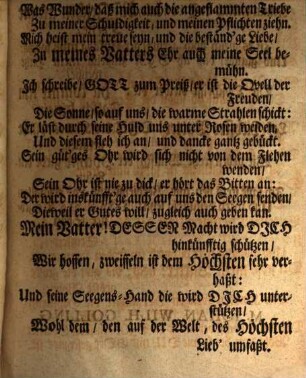 Was Wunder/ daß mich auch die angeflammten Triebe
Zu meiner Schuldigkeit, und meinen Pflichten ziehn.
Mich heist mein treue seyn, und die beständ'ge Liebe/
Zu meines Vatters Ehr auch meine Seel be-
mühn.
Ich schreibe/ GOTT zum Preiß/ er ist die Qvell der
Freuden/
Die Sonne/ so auf uns/ die warme Strahlen schickt:
Er läst durch seine Huld uns unter Rosen weiden,
Und diesem sieh ich an/ und dancke gantz gebückt.
Sein güt'ges Ohr wird sich nicht von dem Flehen
wenden/
Sein Ohr ist nie zu dick/ er hört das Bitten an:
Der wird inskünfft'ge auch auf uns den Seegen senden/
Dierweil er Gutes will/ zugleich auch geben kan.
Mein Vatter! DESSEN Macht wird DICH
hinkünfftig schützen/
Wir hoffen, zweiffeln ist dem Höchsten sehr ver-
haßt:
Und seine Seegens-Hand die wird DICH unter-
stützen/
Wohl dem/ den auf der Welt, des Höchsten
Lieb' umfaßt.